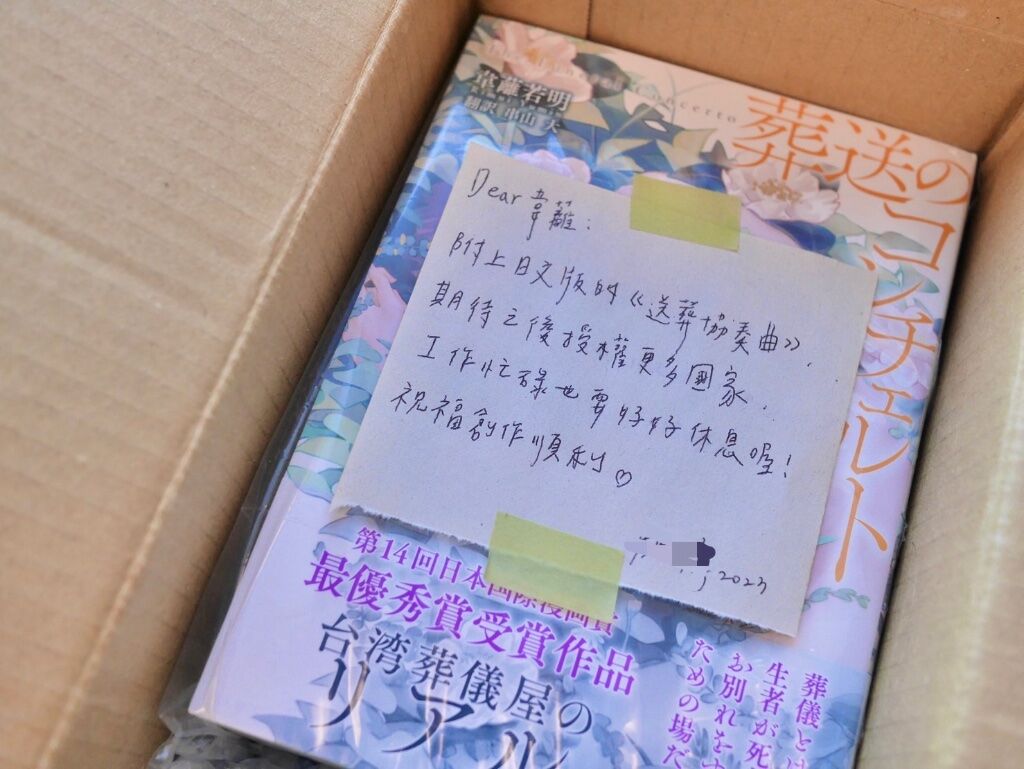 Concerto
韋蘿若明
翻訳 串山 大
葬送のコンチェルト
Dear 韋蘿:
附上日文版的《送葬協奏曲》,
期待之後授權更多國家.
工作忙碌也要好好休息喔!
祝福創作順利♡
2023
第14回日本国際漫画賞
最優秀賞受賞作品
台湾葬儀屋の
リアル
葬儀とは
生者が死
お別れをす
ための場だ